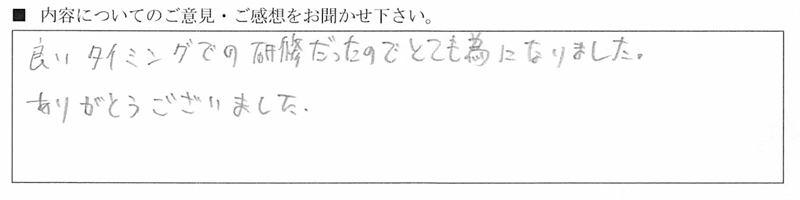 ■ 内容についてのご意見・ご感想をお聞かせ下さい。
良いタイミングでの研修だったのでとても為になりました。
ありがとうございました.